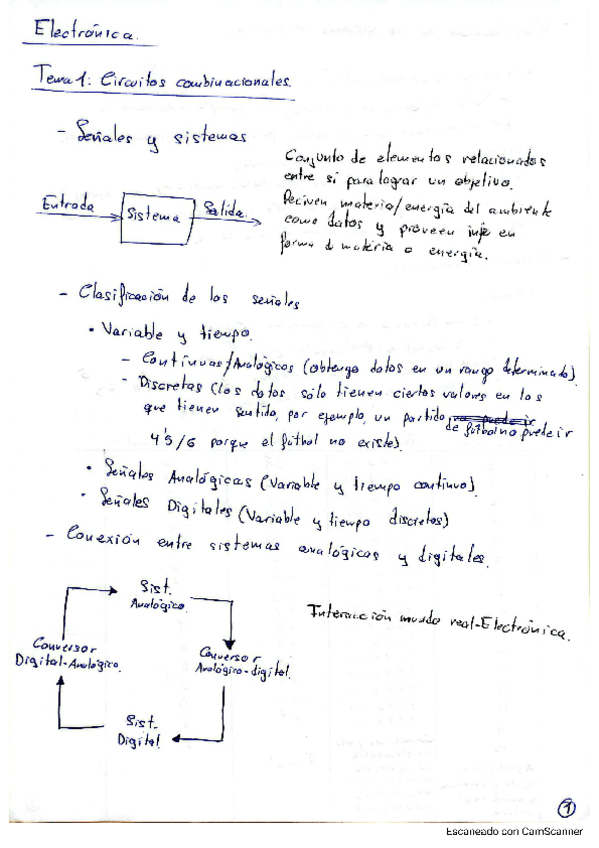 Electrónica.
Tema 1: Circuitos combinacionales.
- Señales y sistemas
Conjunto de elementos relacionados
entre si para lograr un objetivo.
Reciven materia/energía del ambiente
como datos y proveen info en
forma d materia o energía.
Entrada
Sistema
Salida
- Clasificación de las señales
• Variable y tiempo.
- Continuas/Analógicas (obtengo datos en un rango determinado).
- Discretas (los datos solo tienen ciertos valores en los
que tienen sentido, por ejemplo, un partido
de fútbol no puede ir
4'5/6 porque el fútbol no existe).
• Señales Analógicas (Variable y tiempo continuo).
• Señales Digitales (Variable y tiempo discretos)
- Conexión entre sistemas analógicas y digitales.
Sist.
Analógico.
Interacción mundo real-Electrónica.
Conversor
Digital-Analógico.
Conversor
Analógico-digital.
Sist.
Digital
1
Escaneado con CamScanner